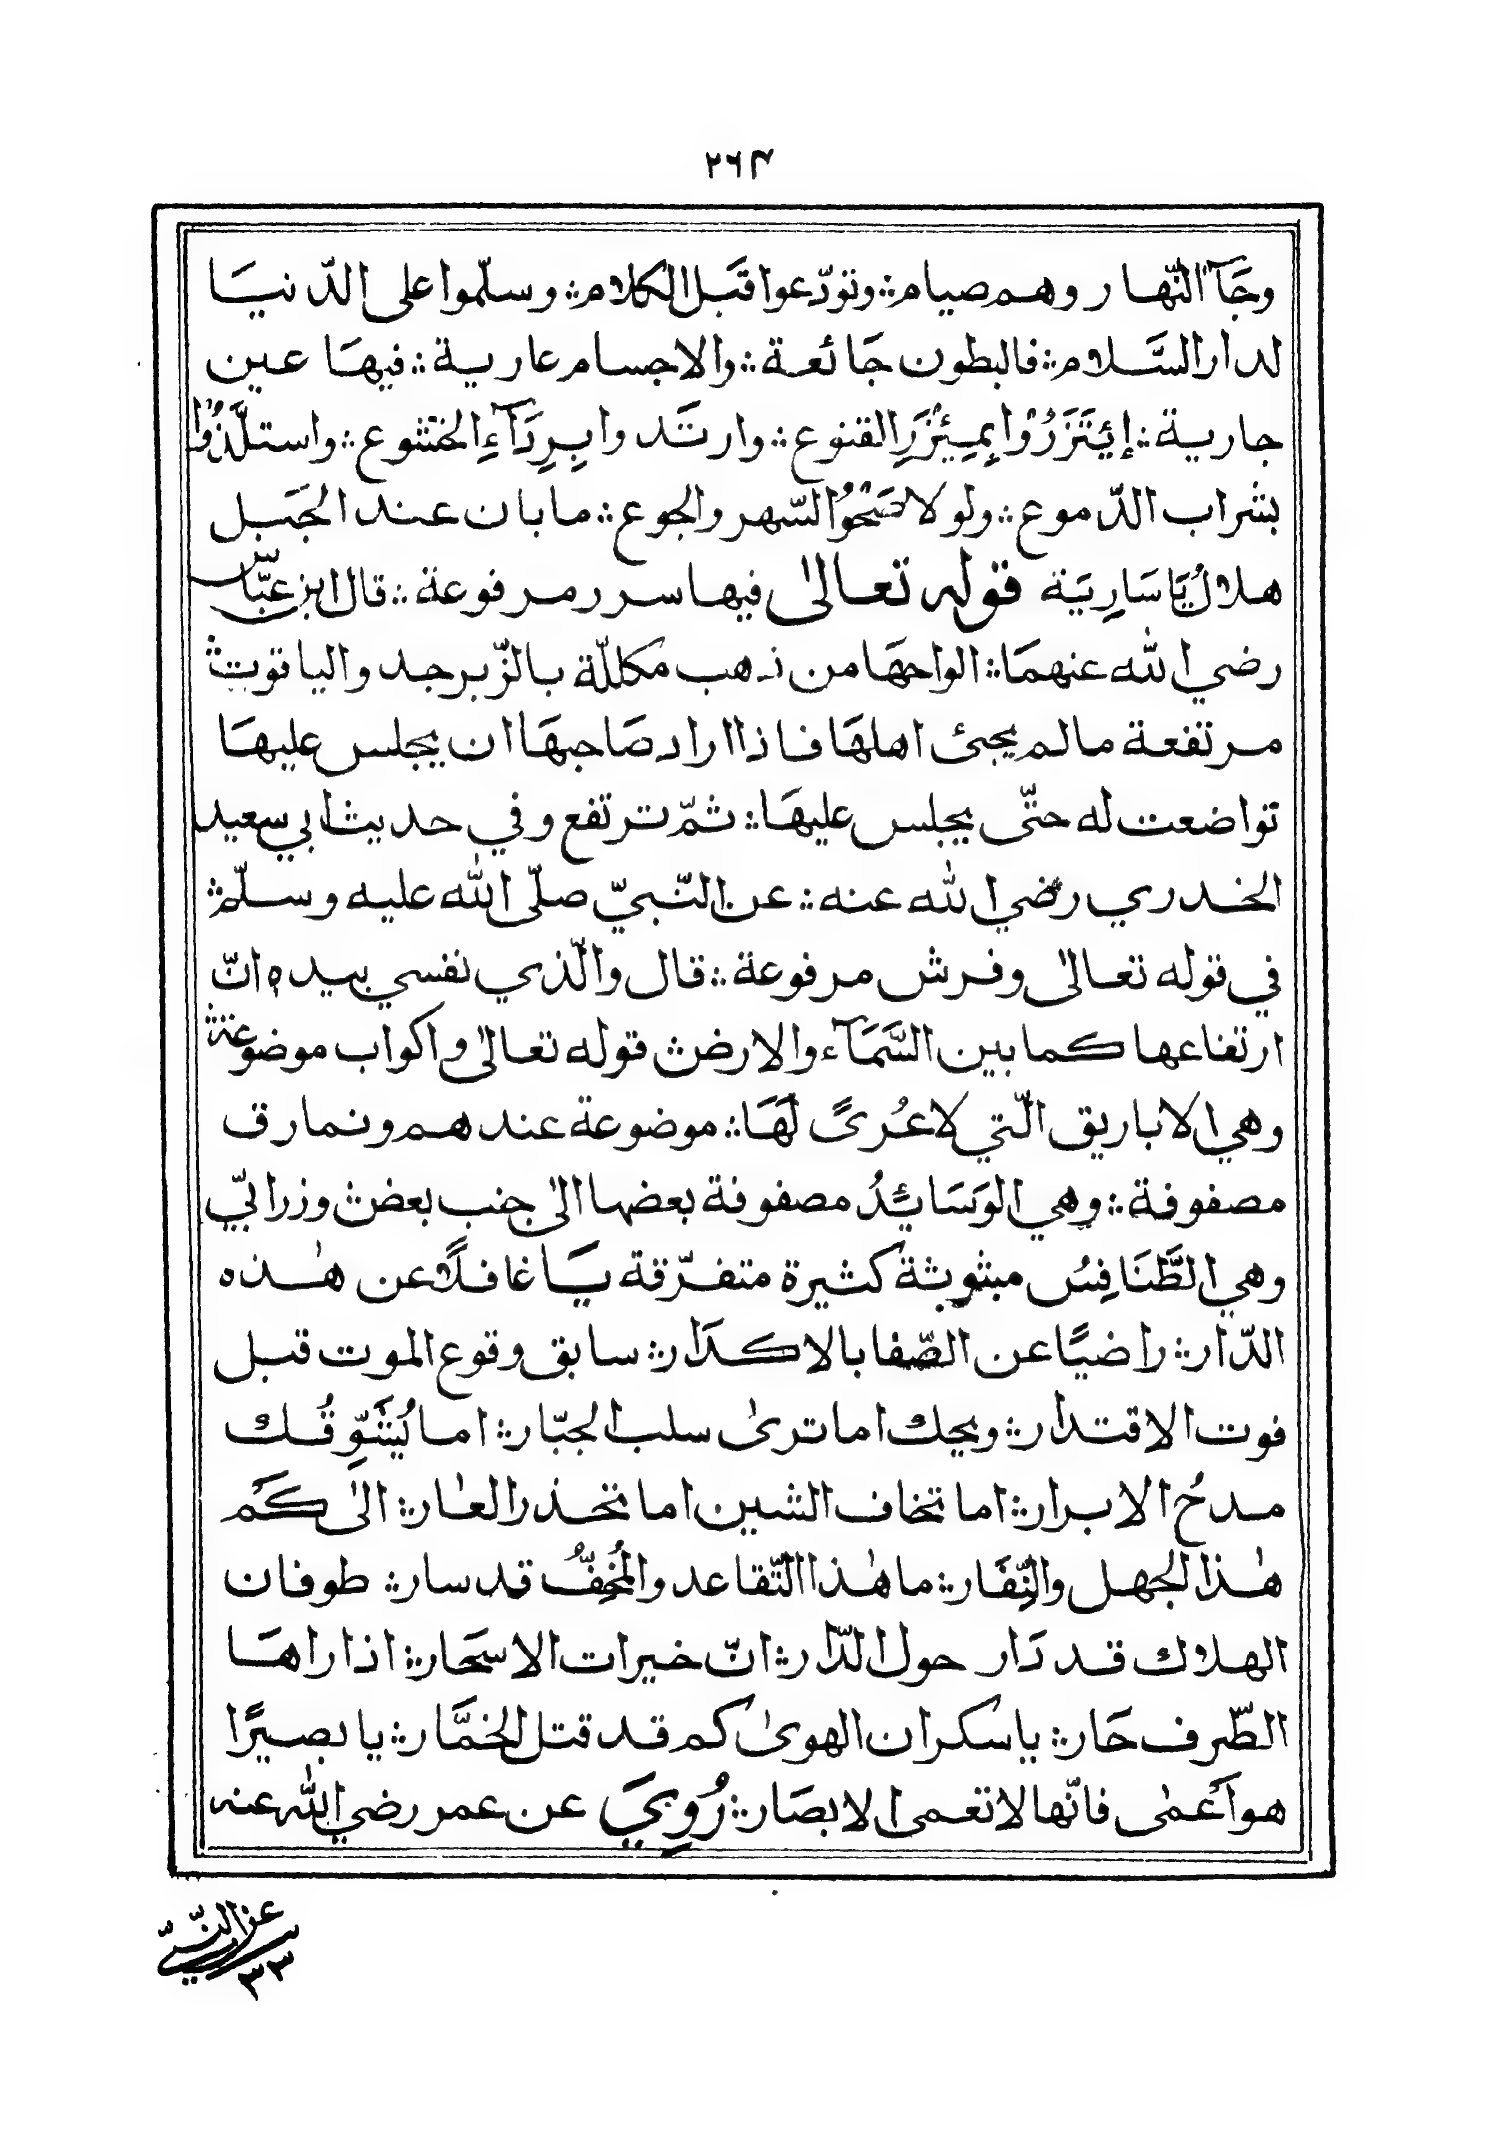 ٢٦٤
وجَآ النّهار وهم صيام ؞ وتودّعوا قبَل الكلام ؞ وسلّموا على الدّنيَا
لدار السَّلام ؞ فالبطون جَائعة ؞ والاجسام عارية ؞ فيهَا عين
جارية ؞ إيتَزَرُوْا بِمِيْزَرِ القنوع ؞ وارتَدوا بِرِدَآءِ الخشوع ؞ واستلَّذُوْا
بشراب الدّموع ؞ ولولا صَحْوُ السّهر والجوع ؞ ما بان عند الجَبَل
هلالُ يَاسَارِيَة قوله تعالىٰ فيها سرر مرفوعة ؞ قال ابن عبّاس
رضي الله عنهمَا ؞ الواحهَا من ذهب مكللّة بالزّبرجد والياقوت ؞
مرتفعة مالم يجئ اهلهَا فاذا اراد صَاحبهَا ان يجلس عليهَا
تواضعت له حتّى يجلس عليهَا ؞ ثمّ ترتفع وفي حديث ابي سعيد
الخدري رضي الله عنه ؞ عن النّبيّ صلّى الله عليه وسلّم ؞
في قوله تعالىٰ وفرش مرفوعة ؞ قال والّذي نفسي بيده انّ
ارتفاعها كما بين السَّمَآء والارض ؞ قوله تعالىٰ واكواب موضوعة ؞
وهي الاباريق الّتي لاعُرىً لَهَا ؞ موضوعة عندهم ونمارق
مصفوفة ؞ وهي الوَسَائِدُ مصفوفة بعضها الىٰ جنب بعض ؞ وزرابيّ
وهي الطَّنَافِسُ مبثوثة كثيرة متفرّقة يَا غافلًا عن هٰذه
الدّار ؞ راضيًا عن الصّفا بالاكدَار ؞ سابق وقوع الموت قبل
فوت الاقتدار ؞ ويحك اما ترىٰ سلب الجبّار ؞ اما يُشَوِّقُك
مدحُ الابرار ؞ اما تخاف الشين اما تحذر العار ؞ الىٰ كَم
هٰذا الجهل والنِّفَار ؞ ما هٰذا التّقاعد والمُخِفُّ قد سار ؞ طوفان
الهلاك قد دَار حول الدّار ؞ انّ خيرات الاسحَار ؞ اذا راهَا
الطّرف حَار ؞ يا سكران الهوىٰ كم قد قتل الخمَّار ؞ يا بصيرًا
هو اَعْمٰى فانّها لا تعمى الابصَار ؞ رُوِيَ عن عمر رضي الله عنه
٣٣